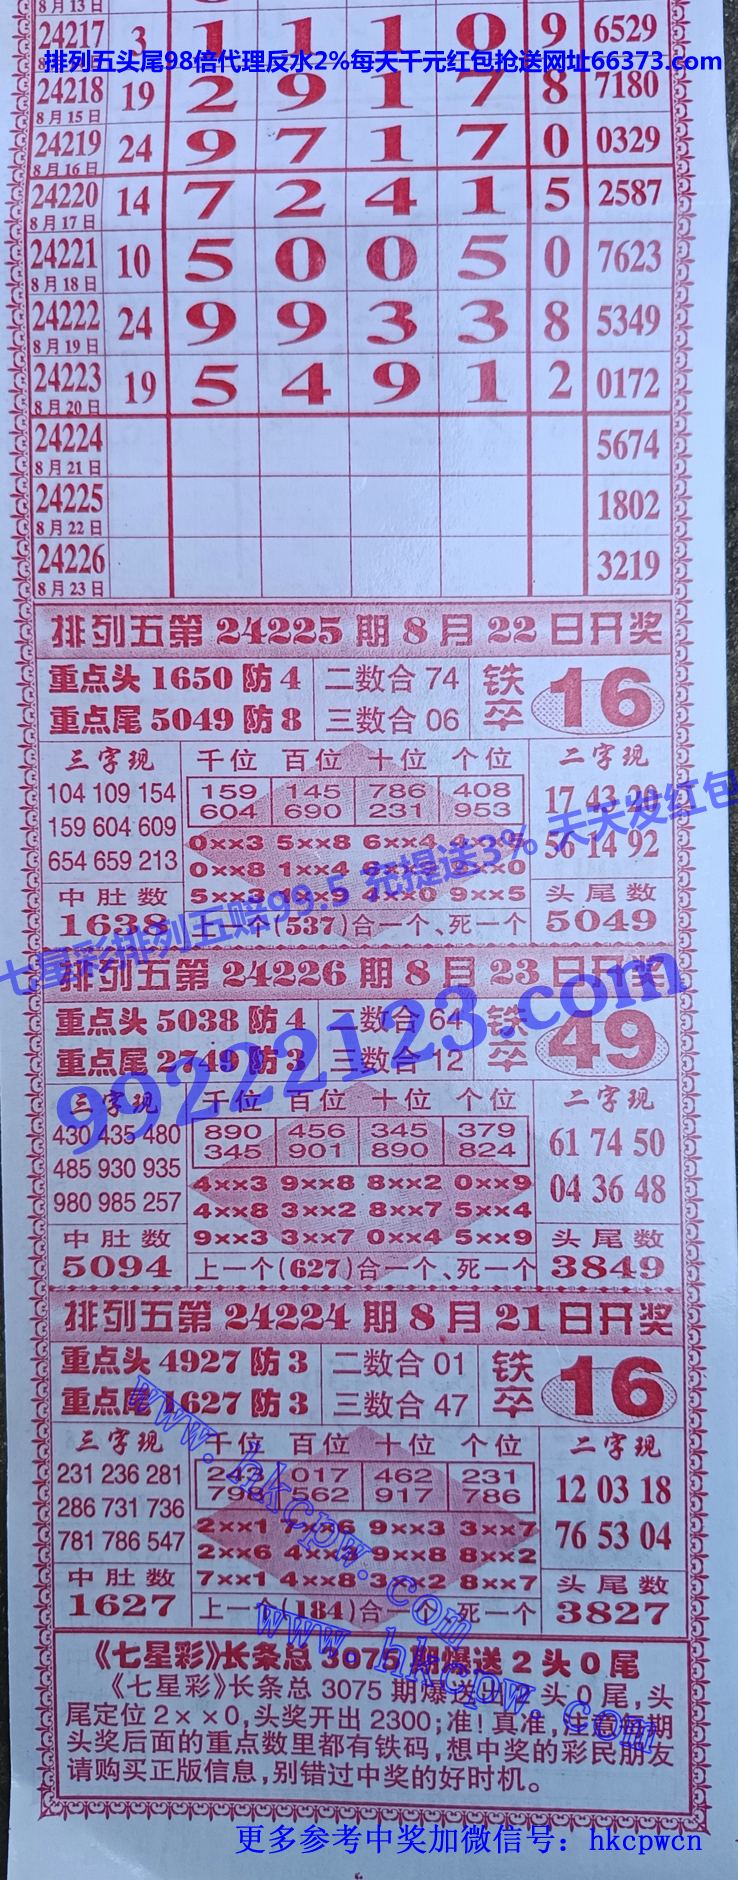 8月13日
24217 3 1 1 1 0 9 6529
排列五头尾98倍代理反水2%每天千元红包抢送网址66373.com
24218 19 2 9 1 7 8 7180
8月15日
24219 24 9 7 1 7 0 0329
8月16日
24220 14 7 2 4 1 5 2587
8月17日
24221 10 5 0 0 5 0 7623
8月18日
24222 24 9 9 3 3 8 5349
8月19日
24223 19 5 4 9 1 2 0172
8月20日
24224 5674
8月21日
24225 1802
8月22日
24226 3219
8月23日
排列五第24225期8月22日开奖
重点头1650防4 二数合74 铁卒 16
重点尾5049防8 三数合06
三字现 千位 百位 十位 个位 二字现
104 109 154 159 145 786 408 17 43 20
604 690 231 953
159 604 609 0××3 5××8 6××4
654 659 213 0××8 1××4 56 14 92
中肚数 5××3 4××0 9××5 头尾数
1638 上一个(537)合一个、死一个 5049
七星彩排列五赔99.5 充提送3% 天天发红包
排列五第24226期8月23日开奖
重点头5038防4 二数合64 铁卒 49
重点尾2749防3 三数合12
99222123.com
三字现 千位 百位 十位 个位 二字现
430 435 480 890 456 345 379 61 74 50
345 901 890 824
485 930 935 4××3 9××8 8××2 0××9
980 985 257 4××8 3××2 8××7 5××4 04 36 48
中肚数 9××3 3××7 0××4 5××9 头尾数
5094 上一个(627)合一个、死一个 3849
排列五第24224期8月21日开奖
重点头4927防3 二数合01 铁卒 16
重点尾1627防3 三数合47
三字现 千位 百位 十位 个位 二字现
231 236 281 243 017 462 231 12 03 18
798 562 917 786
286 731 736 2××1 7××6 9××3 3××7
781 786 547 2××6 4××3 9××8 8××2 76 53 04
中肚数 7××1 4××8 3××2 8××7 头尾数
1627 上一个(184)合一个、死一个 3827
www.hkcpw.com
www.hkcpw.com
《七星彩》长条总3075期爆送2头0尾
《七星彩》长条总3075期爆送出2头0尾,头
尾定位2××0,头奖开出2300;准!真准,注意每期
头奖后面的重点数里都有铁码,想中奖的彩民朋友
请购买正版信息,别错过中奖的好时机。
更多参考中奖加微信号：hkcpwcn